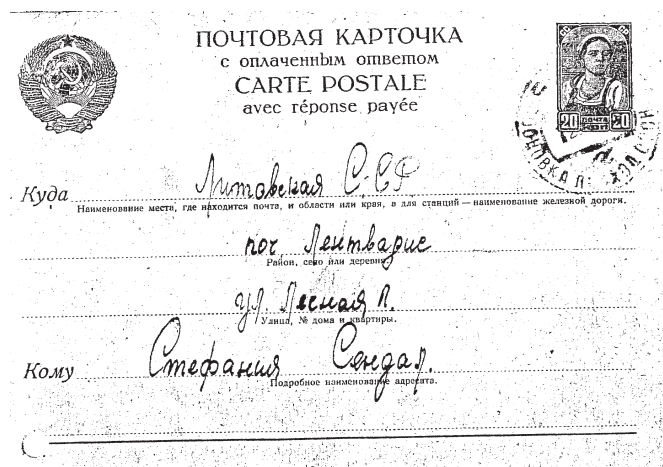 ПОЧТОВАЯ КАРТОЧКА
с оплаченным ответом
CARTE POSTALE
avec réponse payée
20 ПОЧТА 20
СССР
Куда Литовская С.С.Р
Наименование места, где находится почта, и области или края, а для станций — наименование железной дороги.
поч Лентварис
Район, село или деревня.
ул. Лесная
Улица, № дома и квартиры.
Кому Стефания Сендал.
Подробное наименование адресата.